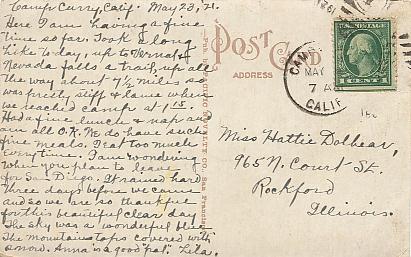 Camp Curry, Calif. May 23, 21.
Here I am having a fine
time so far. Took a long
hike to-day, up to Vernal &
Nevada falls a trail, up all
the way about 7½ miles, so
was pretty stiff & lame when
we reached camp at 1 15.
Had a fine lunch & nap and
am all O.K. We do have such
fine meals. I eat too much
everytime. I am wondering
when you plan to leave
for San Diego. It rained hard
three days before we came
and so we are so thankful
for this beautiful clear day
The sky was a wonderful blue
The mountain tops covered with
snow. Anna is a good "pal". Leta.
POST CARD
ADDRESS
CAMP
MAY
7 A
CALIF
1 CENT 1
Miss Hattie Dolbear,
965 N. Court St.
Rockford
Illinois.